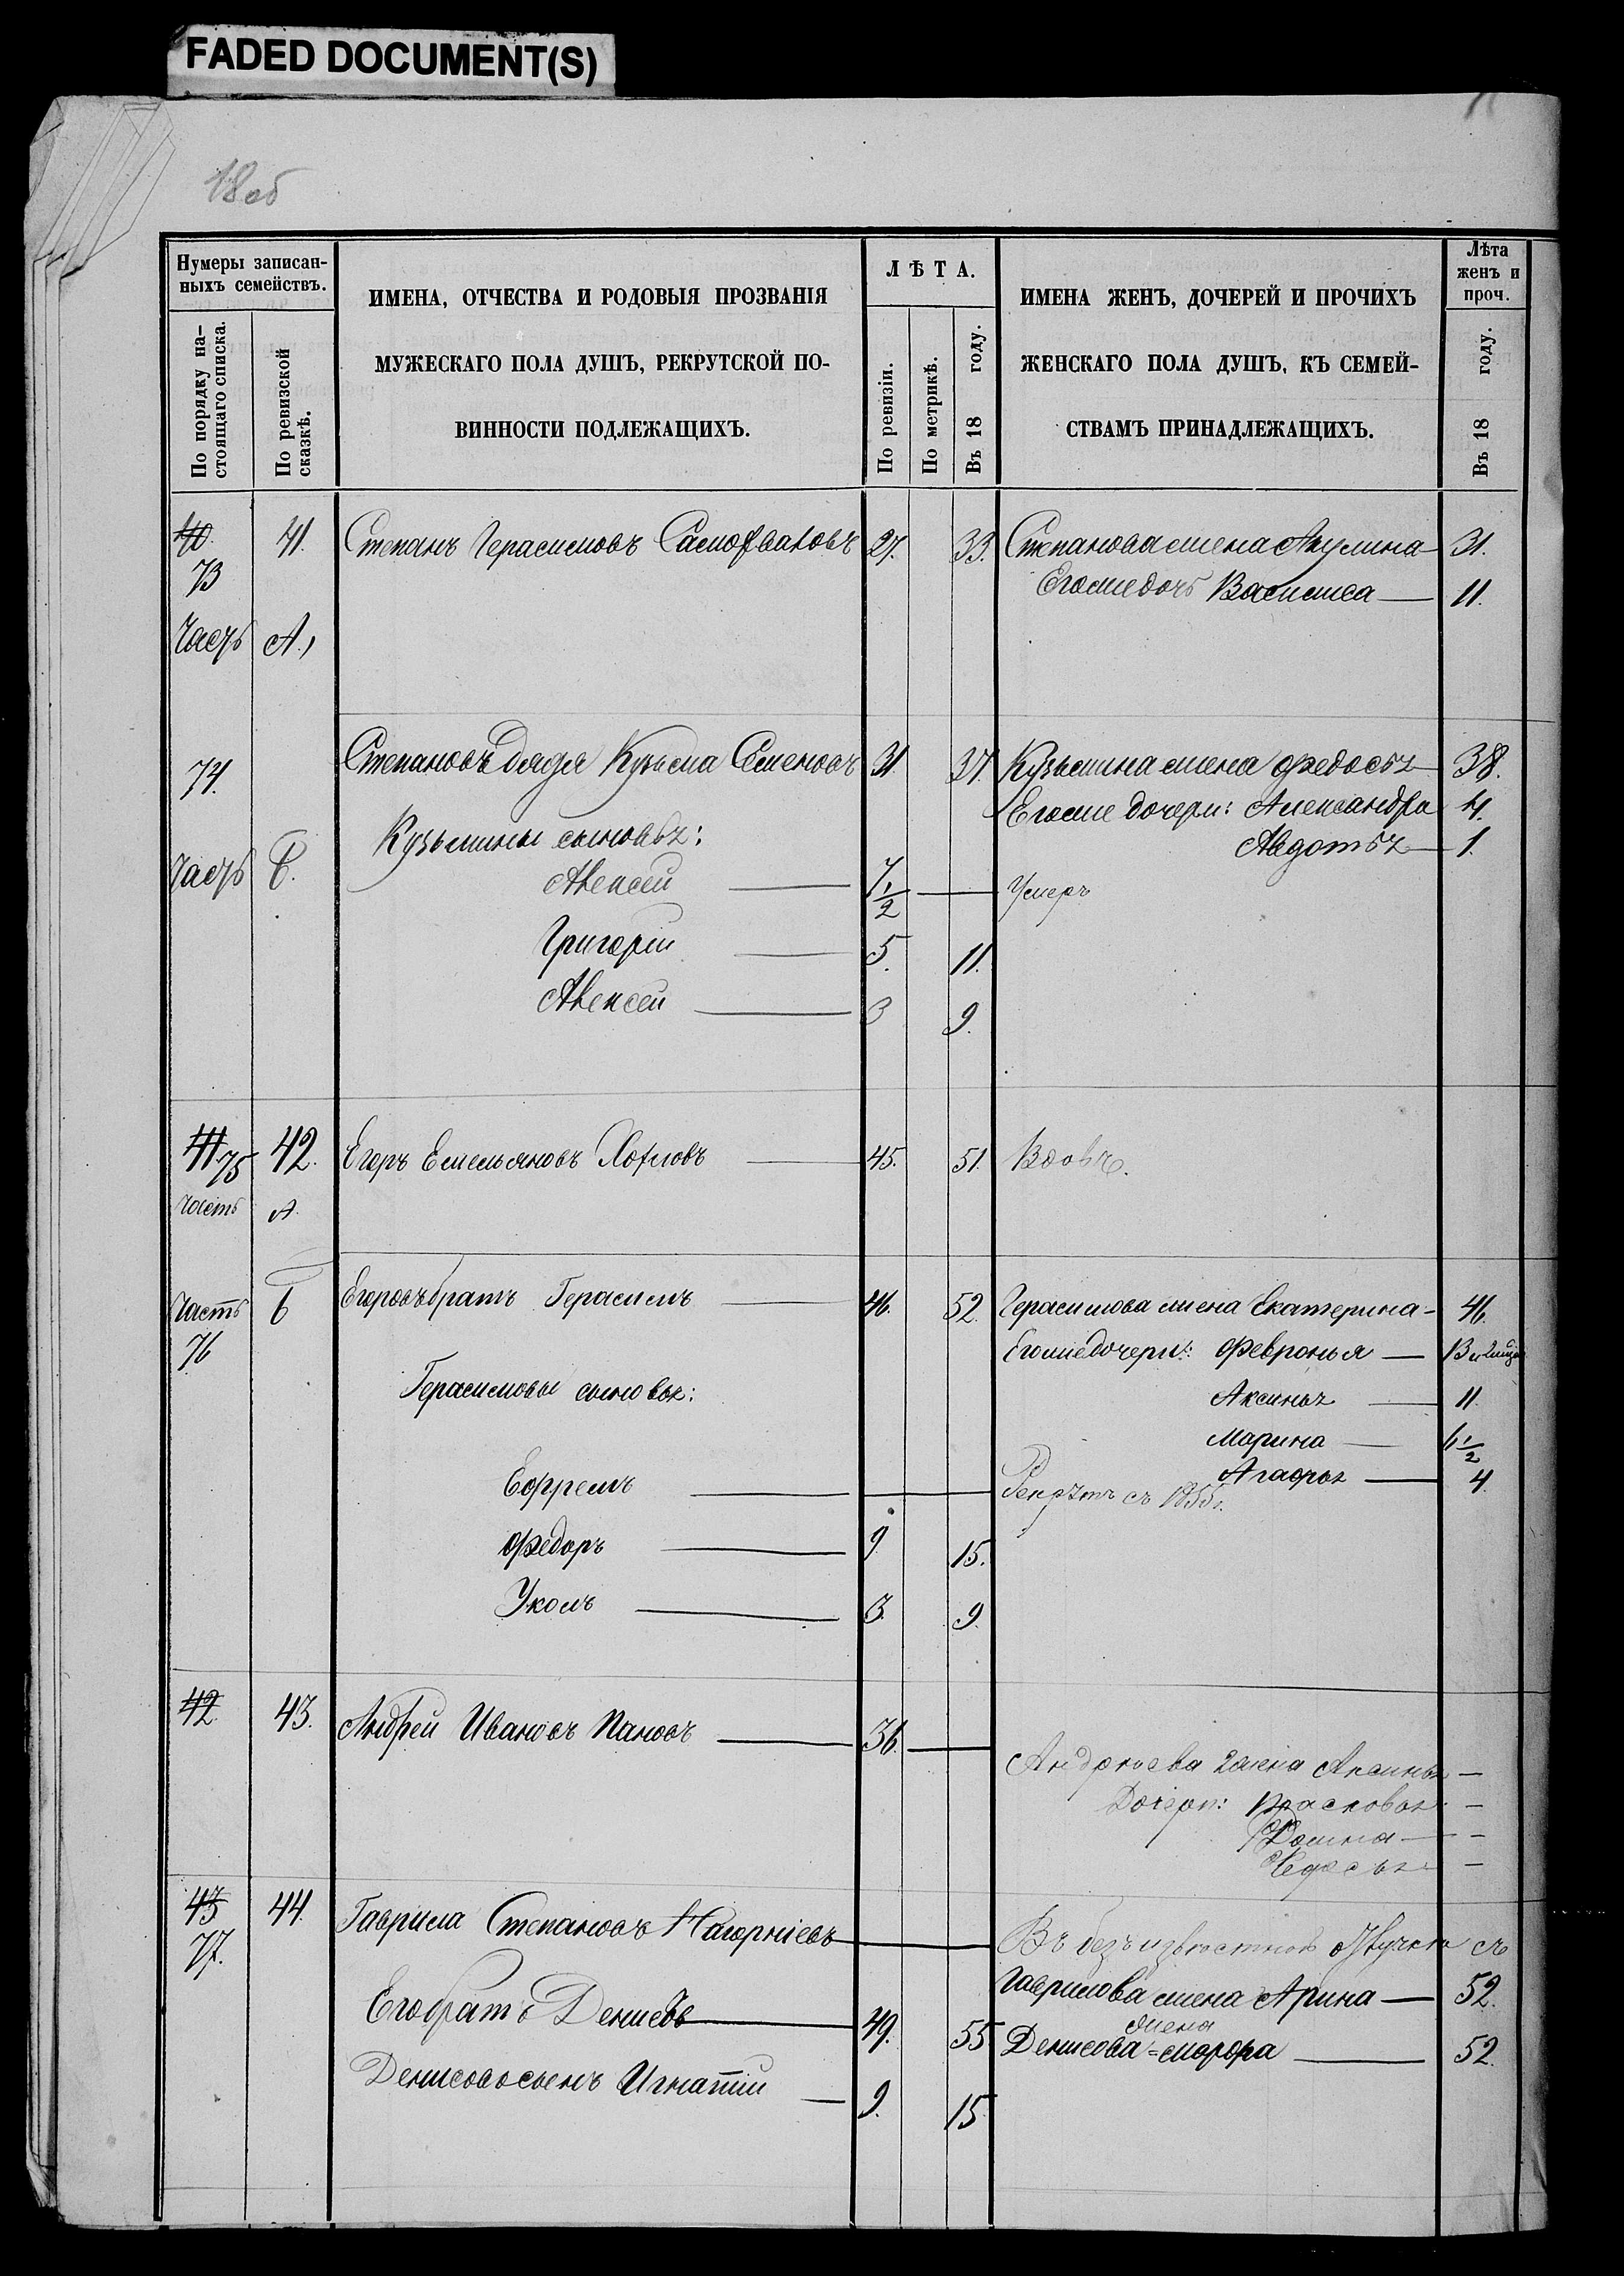 FADED DOCUMENT(S)
18 об
Нумеры записан-
ныхъ семействъ.
По порядку на-
стоящаго списка.
По ревизской
сказкѣ.
ИМЕНА, ОТЧЕСТВА И РОДОВЫЯ ПРОЗВАНІЯ
МУЖЕСКАГО ПОЛА ДУШЪ, РЕКРУТСКОЙ ПО-
ВИННОСТИ ПОДЛЕЖАЩИХЪ.
ЛѢТА.
По ревизіи.
По метрикѣ.
Въ 18 году.
ИМЕНА ЖЕНЪ, ДОЧЕРЕЙ И ПРОЧИХЪ
ЖЕНСКАГО ПОЛА ДУШЪ, КЪ СЕМЕЙ-
СТВАМЪ ПРИНАДЛЕЖАЩИХЪ.
Лѣта
женъ и
проч.
Въ 18 году.
40. 41. Степанъ Герасимовъ 27. 33. Степанова жена Акулина 31.
73 Его же дочь Василиса 11.
Часть А.
74. Степановъ дядя Кузьма Семеновъ 31 37. Кузьмина жена Федосья 38.
Его же дочери: Александра 4.
Кузьмины сыновья: Авдотья 1.
Часть Б. Алексей 7 1/2 Умеръ
Григорій 5. 11.
Алексей 3 9.
41. 75 42. Егоръ Емельяновъ Хохловъ 45. 51. Вдовъ.
Часть А.
Часть Б Егоровъ братъ Герасимъ 46. 52. Герасимова жена Екатерина 46.
76 Его же дочери: Февронья
Герасимовы сыновья: Аксинья 11.
Марина 6 1/2
Агафья 4.
Ефремъ Рекрутъ съ 1855 г.
Федоръ 9 15.
3. 9.
42. 43. Андрей Ивановъ Пановъ 36.
Андреева жена Аксинья
Дочери: Прасковья
Домна
Федосья
43 44. Гаврила Степановъ
77. Въ безъизвестной отлучке съ
Гаврилова жена Арина 52.
Его братъ Денисъ 49. 55 жена
Денисова 52.
Денисовъ сынъ Игнатій 9. 15